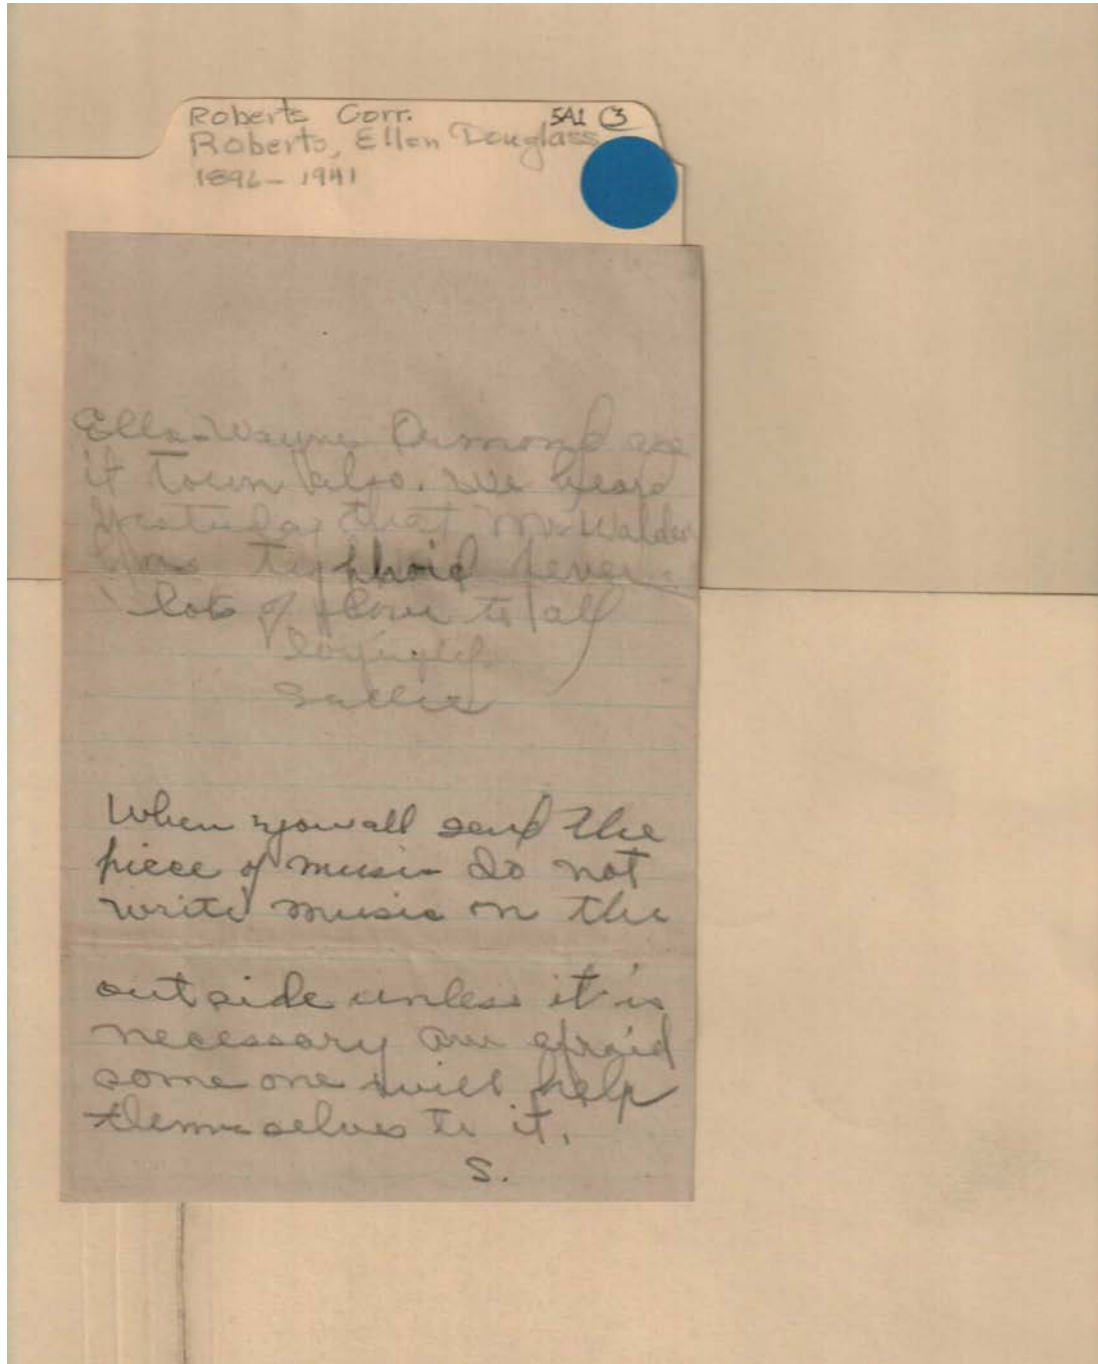 Roberts Corr. 5A1 (3)
Roberts, Ellen Douglass
1896 - 1941
Ella Wayne Ormond are
it town also. We heard
yesterday that Mr. Walder
has typhoid fever.
lots of love to all
Lovingly
Sallie
When you all send the
piece of music do not
write music on the
outside unless it is
necessary am afraid
some one will help
themselves to it.
S.